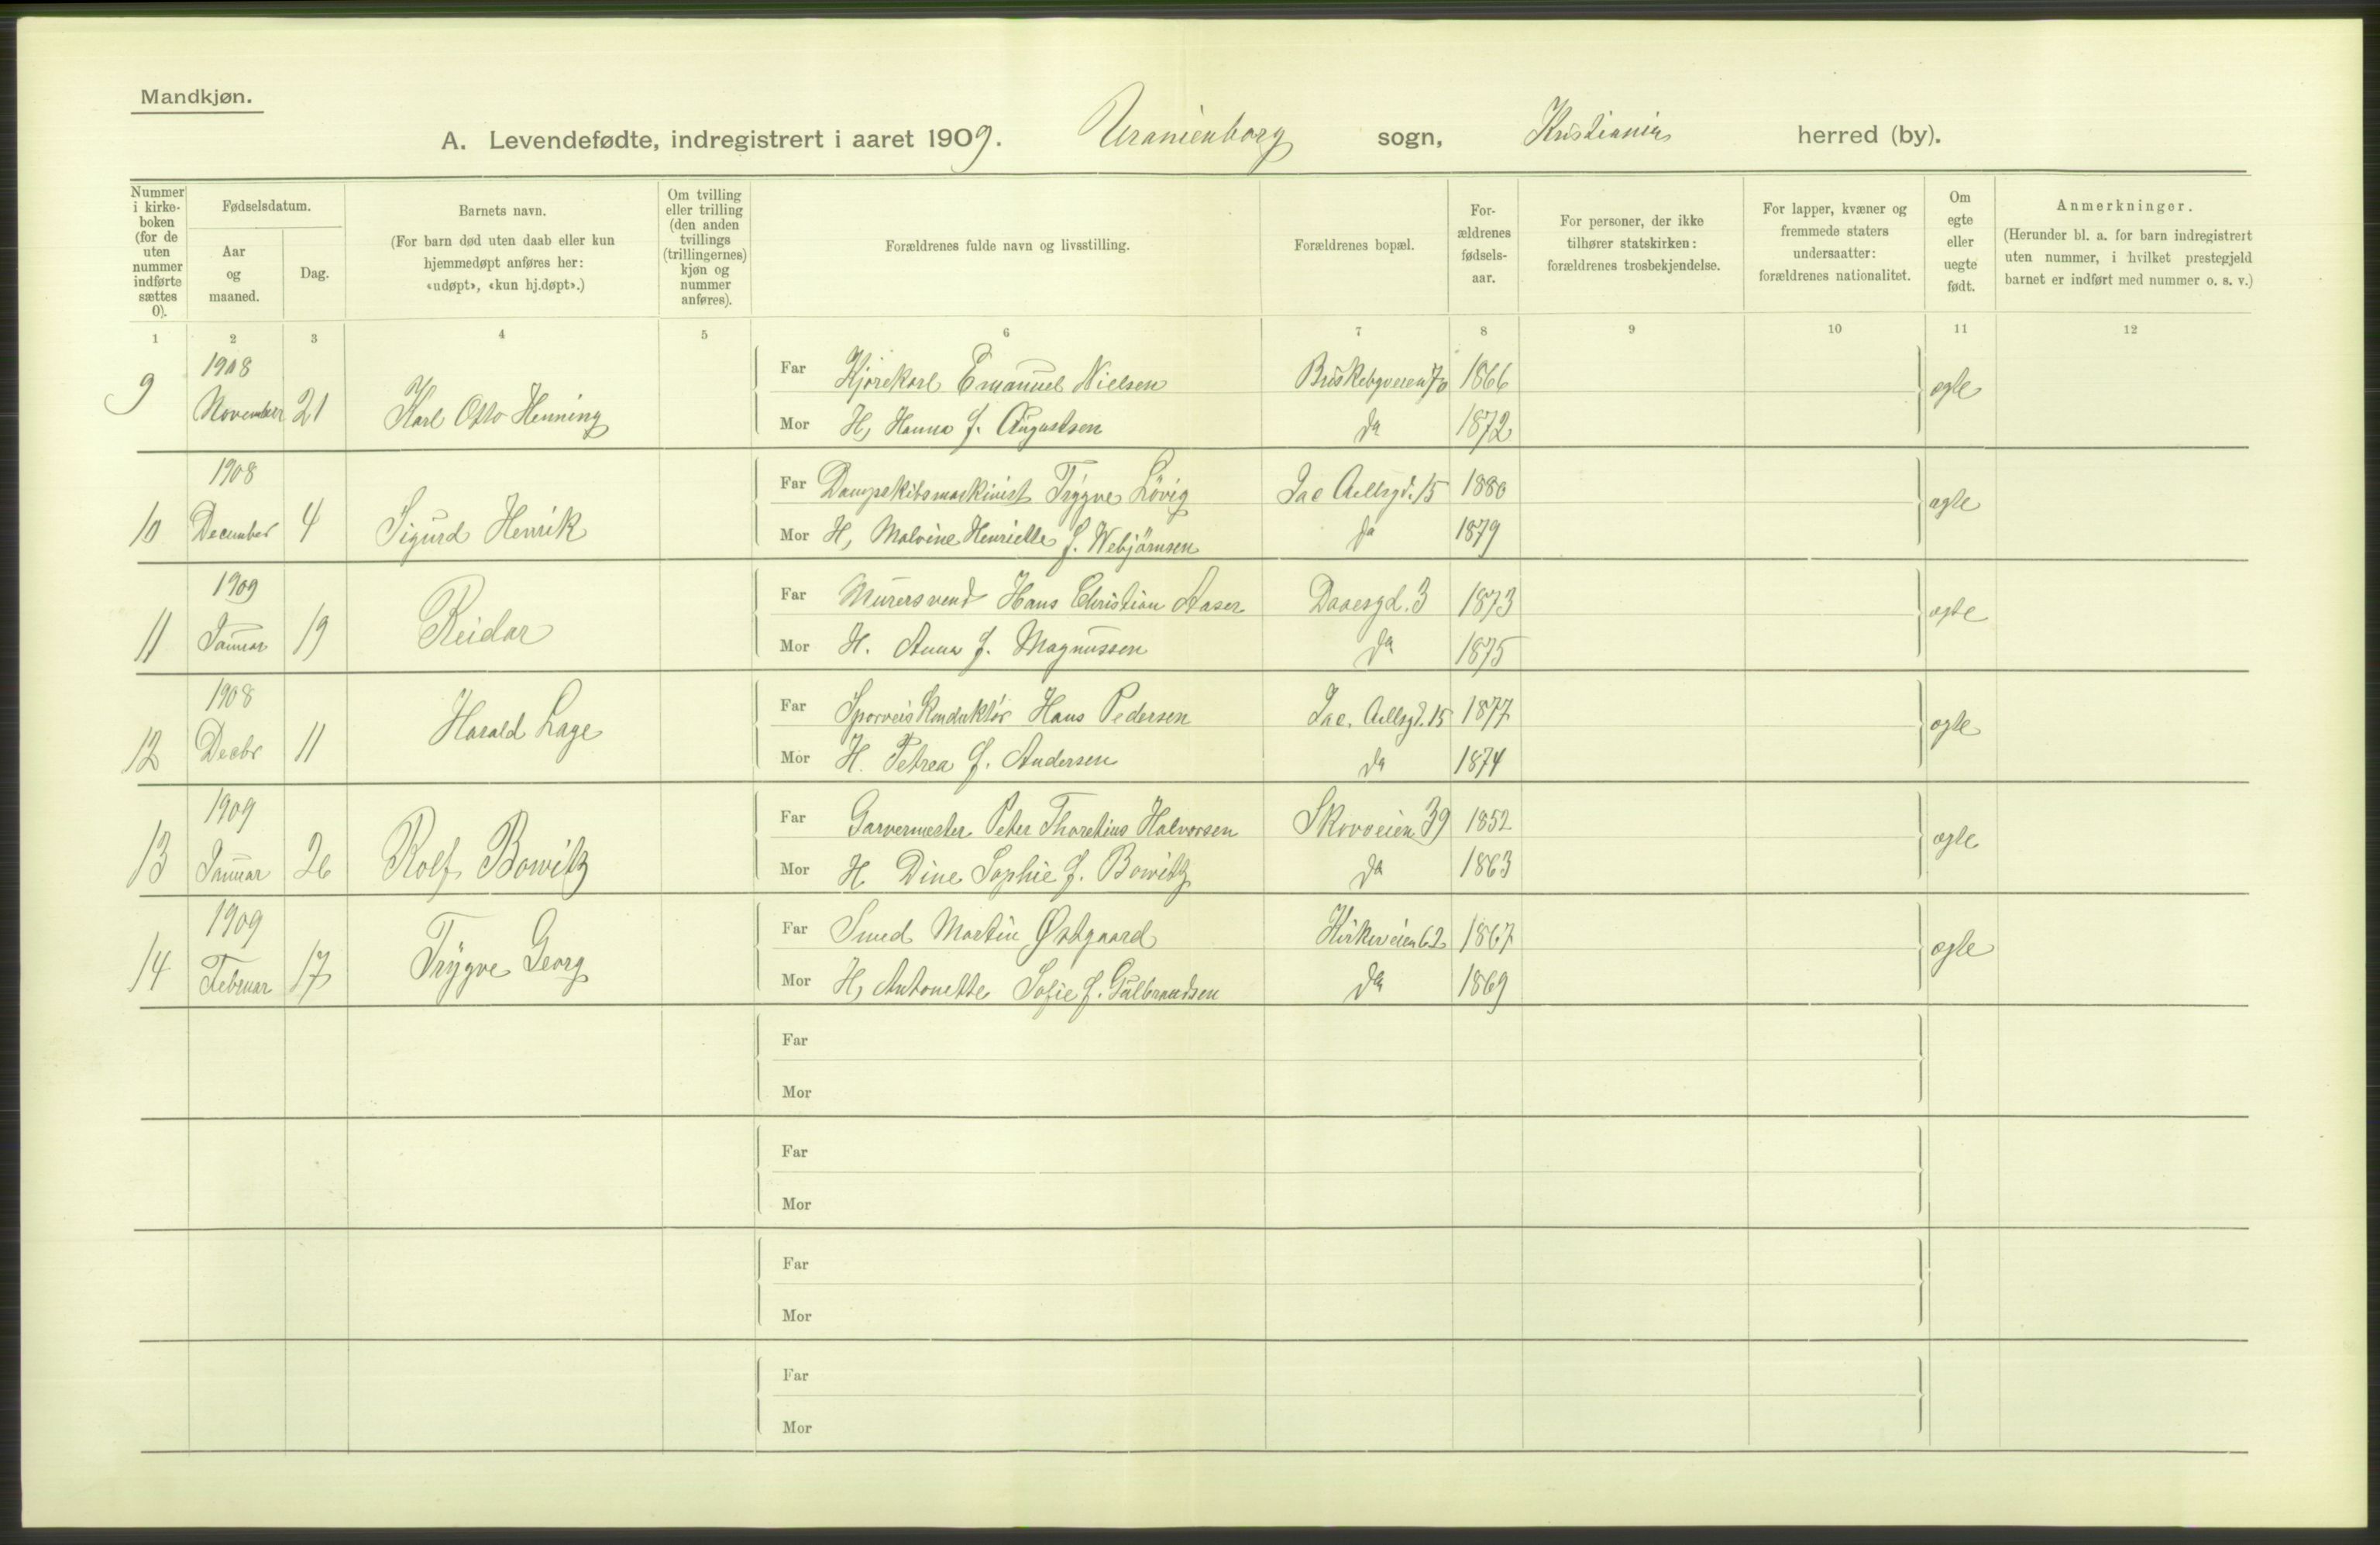 Mandkjøn.
A. Levendefødte, indregistrert i aaret 1909. Uranienborg sogn, Kristiania herred (by).
Nummer i kirke-boken (for de uten nummer indførte sættes 0).
Fødselsdatum.
Aar og maaned.
Dag.
Barnets navn.
(For barn død uten daab eller kun hjemmedøpt anføres her: «udøpt», «kun hj.døpt».)
Om tvilling eller trilling (den anden tvillings (trillingernes) kjøn og nummer anføres).
Forældrenes fulde navn og livsstilling.
Forældrenes bopæl.
For-ældrenes fødsels-aar.
For personer, der ikke tilhører statskirken: forældrenes trosbekjendelse.
For lapper, kvæner og fremmede staters undersaatter: forældrenes nationalitet.
Om egte eller uegte født.
Anmerkninger.
(Herunder bl. a. for barn indregistrert uten nummer, i hvilket prestegjeld barnet er indført med nummer o. s. v.)
1 2 3 4 5 6 7 8 9 10 11 12
9 1908 November 21 Karl Otto Henning
Far Kjørekarl Emanuel Nielsen Briskebyveien 70 1866 egte
Mor H, Hanna f. Augustsen da 1872
10 1908 December 4 Sigurd Henrik
Far Dampskibsmaskinist Trygve Lövig Jac Aallsgd. 15 1880 egte
Mor H, Malvine Henriette f. Webjörnsen da 1879
11 1909 Januar 19 Reidar
Far Murersvend Hans Christian Aaser Daaesgd. 3 1873 egte
Mor H. Anna f. Magnussen da 1875
12 1908 Decbr 11 Harald Lage
Far Sporveiskonduktör Hans Pedersen Jac. Aallsgd. 15 1877 egte
Mor H. Petrea f. Andersen da 1874
13 1909 Januar 26 Rolf Bowitz
Far Garvermester Peter Thoretius Halvorsen Skovveien 39 1852 egte
Mor H Dine Sophie f. Bowitz da 1863
14 1909 Februar 17 Trygve Georg
Far Smed Martin Østgaard Kirkeveien 62 1867 egte
Mor H, Antonette Sofie f. Gulbrandsen da 1869
Far
Mor
Far
Mor
Far
Mor
Far
Mor